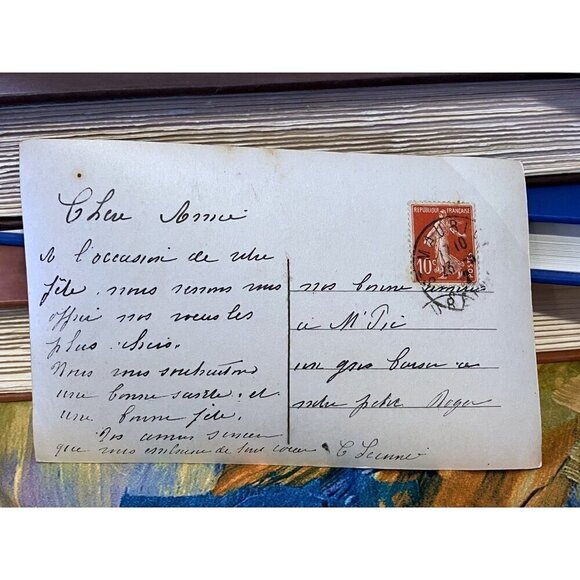 Chere Amie
A l'occasion de votre
fête nous venons vous
offrir nos voeux les
plus chers.
Nous vous souhaitons
une bonne santé et
une bonne fête.
Vos amis
que vous embrasse de tout coeur
nos bonne
a Mr
un gros baiser a
votre petit Roger
C
REPUBLIQUE FRANÇAISE
10c
POSTES
10